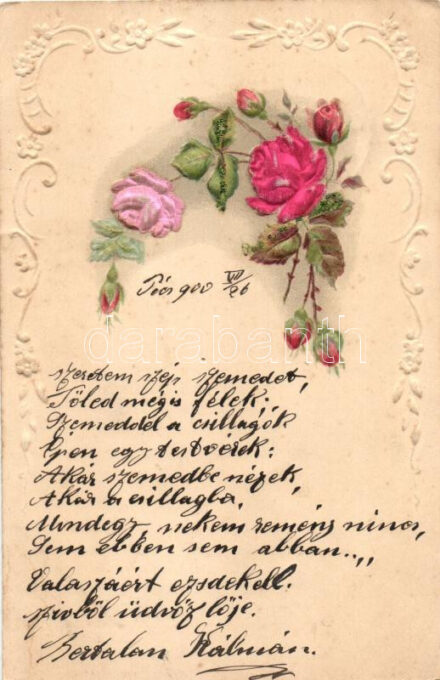 Pécs 900 VII/26
darabanth
szeretem szép szemedet,
Tőled mégis félek;
Szemeddel a csillagók
Épen egy testvérek:
Akár szemedbe nézek,
Akár a csillagba,
Mindegy, nekem remény nincs,
Sem ebben sem abban..,,
Valaszáért esdekell.
szivből üdvözlője.
Bertalan Kálmán.